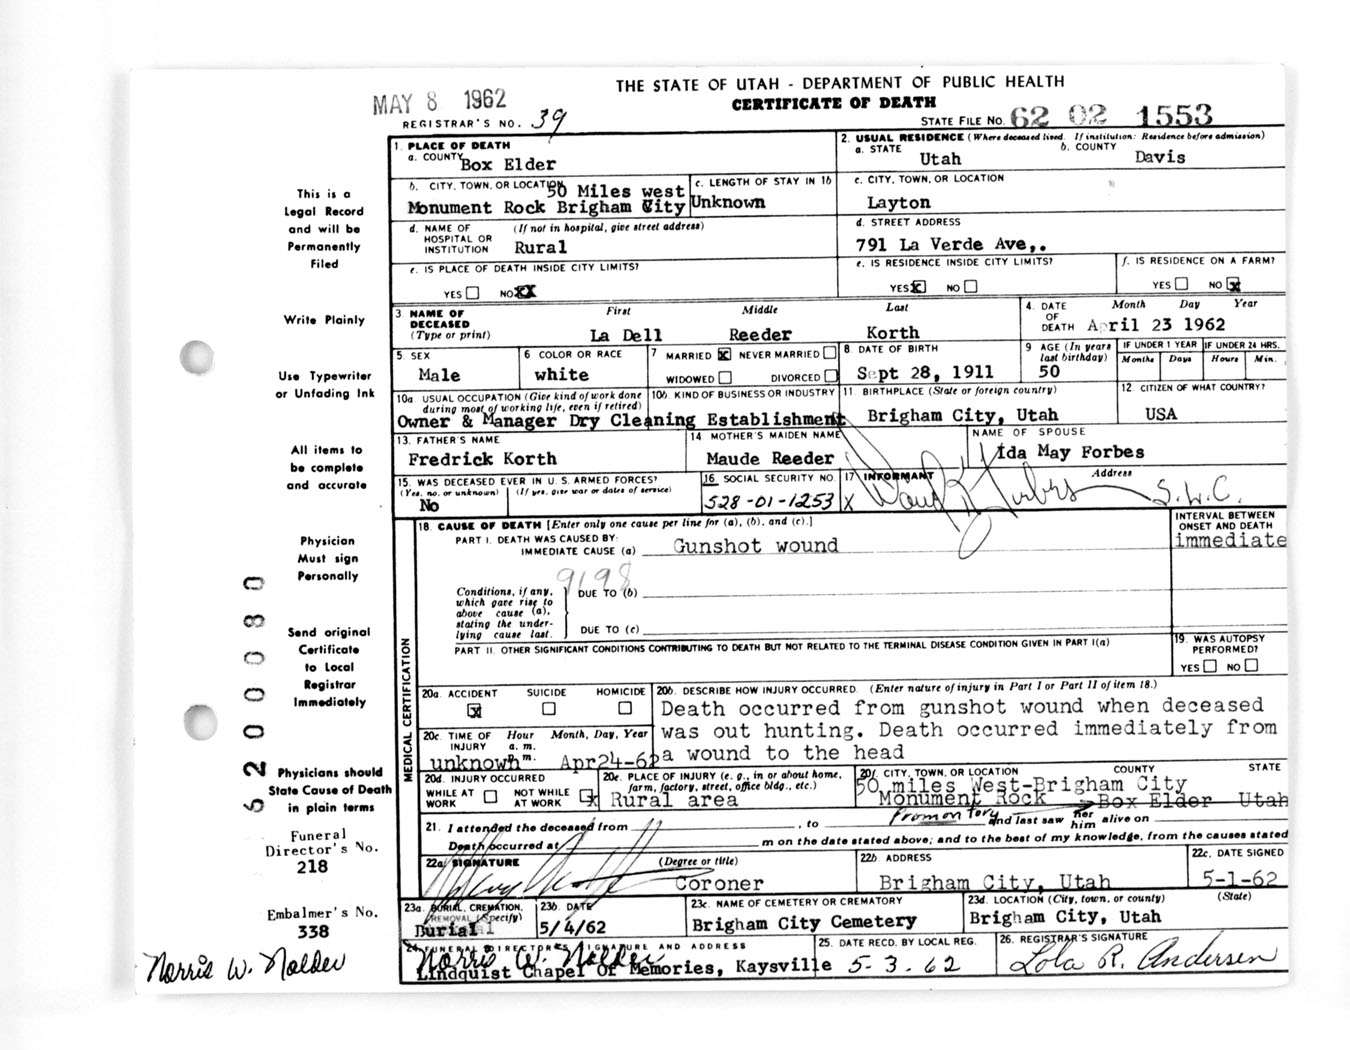 THE STATE OF UTAH - DEPARTMENT OF PUBLIC HEALTH
MAY 8 1962
CERTIFICATE OF DEATH
REGISTRAR'S NO. 39
STATE FILE NO. 62 02 1553
1. PLACE OF DEATH
a. COUNTY Box Elder
2. USUAL RESIDENCE (Where deceased lived. If institution: Residence before admission)
a. STATE Utah
b. COUNTY Davis
b. CITY, TOWN, OR LOCATION 50 Miles west
Monument Rock Brigham City
c. LENGTH OF STAY IN 1b
Unknown
c. CITY, TOWN, OR LOCATION
Layton
d. NAME OF HOSPITAL OR INSTITUTION (If not in hospital, give street address)
Rural
d. STREET ADDRESS
791 La Verde Ave,.
e. IS PLACE OF DEATH INSIDE CITY LIMITS?
YES NO XX
e. IS RESIDENCE INSIDE CITY LIMITS?
YES X NO
f. IS RESIDENCE ON A FARM?
YES NO X
3. NAME OF DECEASED (Type or print)
First Middle Last
La Dell Reeder Korth
4. DATE OF DEATH Month Day Year
April 23 1962
5. SEX
Male
6 COLOR OR RACE
white
7 MARRIED X NEVER MARRIED
WIDOWED DIVORCED
8. DATE OF BIRTH
Sept 28, 1911
9 AGE (In years last birthday)
50
IF UNDER 1 YEAR
Months Days
IF UNDER 24 HRS.
Hours Min.
10a. USUAL OCCUPATION (Give kind of work done during most of working life, even if retired)
10b. KIND OF BUSINESS OR INDUSTRY
Owner & Manager Dry Cleaning Establishment
11 BIRTHPLACE (State or foreign country)
Brigham City, Utah
12 CITIZEN OF WHAT COUNTRY?
USA
13. FATHER'S NAME
Fredrick Korth
14 MOTHER'S MAIDEN NAME
Maude Reeder
NAME OF SPOUSE
Ida May Forbes
15. WAS DECEASED EVER IN U.S. ARMED FORCES?
(Yes, no, or unknown) (If yes, give war or dates of service)
No
16. SOCIAL SECURITY NO.
528-01-1253
17 INFORMANT Address
X S.L.C.
18. CAUSE OF DEATH [Enter only one cause per line for (a), (b), and (c).]
PART I. DEATH WAS CAUSED BY:
IMMEDIATE CAUSE (a) Gunshot wound
INTERVAL BETWEEN ONSET AND DEATH
immediate
9198
Conditions, if any, which gave rise to above cause (a), stating the underlying cause last.
DUE TO (b)
DUE TO (c)
PART II. OTHER SIGNIFICANT CONDITIONS CONTRIBUTING TO DEATH BUT NOT RELATED TO THE TERMINAL DISEASE CONDITION GIVEN IN PART I(a)
19. WAS AUTOPSY PERFORMED?
YES NO
MEDICAL CERTIFICATION
20a. ACCIDENT SUICIDE HOMICIDE
X
20b. DESCRIBE HOW INJURY OCCURRED. (Enter nature of injury in Part I or Part II of item 18.)
Death occurred from gunshot wound when deceased
was out hunting. Death occurred immediately from
a wound to the head
20c. TIME OF INJURY Hour a.m. m. Month, Day, Year
unknown Apr24-62
20d. INJURY OCCURRED
WHILE AT WORK NOT WHILE AT WORK X
20e. PLACE OF INJURY (e. g., in or about home, farm, factory, street, office bldg., etc.)
Rural area
20f. CITY, TOWN, OR LOCATION COUNTY STATE
50 miles West-Brigham City
Monument Rock Box Elder Utah
Promontory
21. I attended the deceased from , to and last saw her him alive on
Death occurred at m on the date stated above; and to the best of my knowledge, from the causes stated
22a. SIGNATURE (Degree or title)
Coroner
22b. ADDRESS
Brigham City, Utah
22c. DATE SIGNED
5-1-62
23a. BURIAL, CREMATION, REMOVAL (Specify)
Burial
23b. DATE
5/4/62
23c. NAME OF CEMETERY OR CREMATORY
Brigham City Cemetery
23d. LOCATION (City, town, or county) (State)
Brigham City, Utah
24. FUNERAL DIRECTOR'S SIGNATURE AND ADDRESS
Norris W. Nalder
Lindquist Chapel Of Memories, Kaysville
25. DATE RECD. BY LOCAL REG.
5-3-62
26. REGISTRAR'S SIGNATURE
Lola R. Andersen
This is a
Legal Record
and will be
Permanently
Filed
Write Plainly
Use Typewriter
or Unfading Ink
All items to
be complete
and accurate
Physician
Must sign
Personally
Send original
Certificate
to Local
Registrar
Immediately
Physicians should
State Cause of Death
in plain terms
Funeral
Director's No.
218
Embalmer's No.
338
Norris W. Nalder